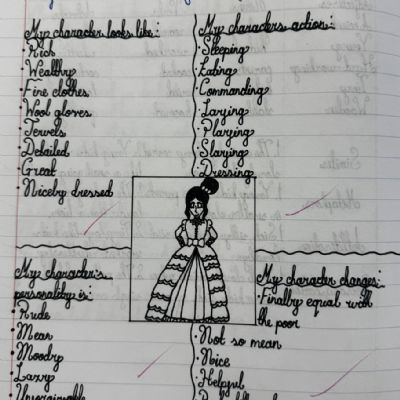 My character looks like:
• Rich
• Wealthy
• Fine clothes
• Wool gloves
• Jewels
• Detailed
• Great
• Nicely dressed
My characters action:
• Sleeping
• Eating
• Commanding
• Laying
• Playing
• Slaying
• Dressing
My character's
personality is:
• Rude
• Mean
• Moody
• Lazy
My character changes:
• Finally equal with
the poor
• Not so mean
• Nice
• Helpful